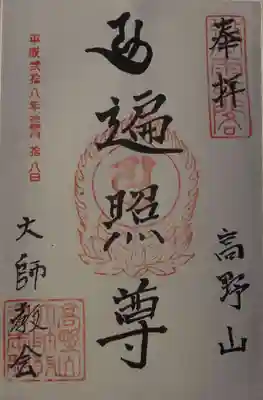 奉拝
高野山
遍照尊
大師教会
平成弐拾八年 拾八日